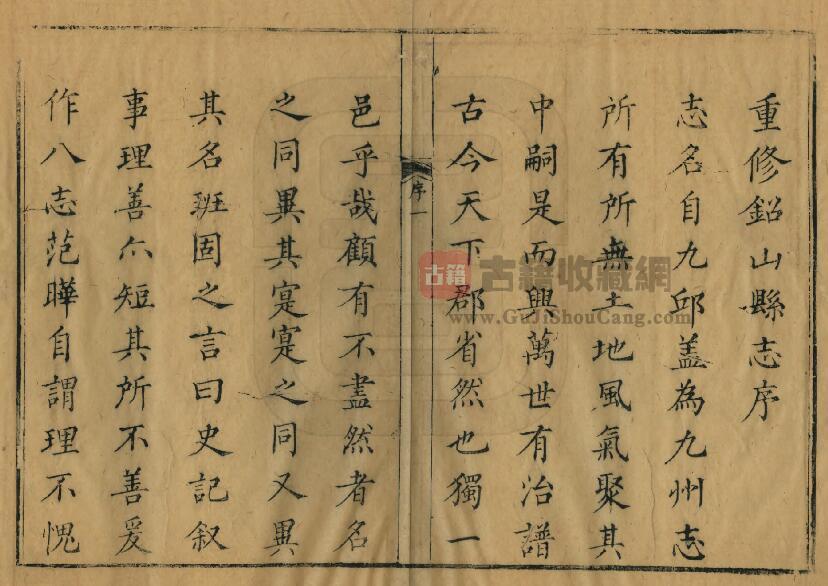 重修鉛山縣志序
志名自九邱蓋為九州志
所有所無土地風氣聚其
中嗣是而興萬世有治譜
古今天下郡省然也獨一
序一
邑乎哉顧有不盡然者名
之同異其寔寔之同又異
其名班固之言曰史記叙
事理善亦短其所不善爰
作八志范曄自謂理不愧
古籍 古籍收藏網
www.GuJiShouCang.com